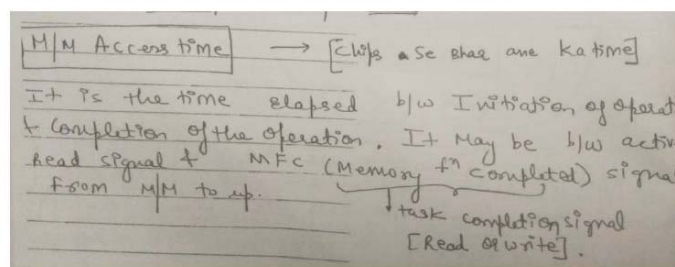 M/M Access time → [Chip se bhar ane ka time]
It is the time elapsed b/w Initiation of operat
& Completion of the operation. It May be b/w activ
Read signal & MFC (Memory fⁿ completed) signa
From M/M to up.
task completion signal
[Read or write].